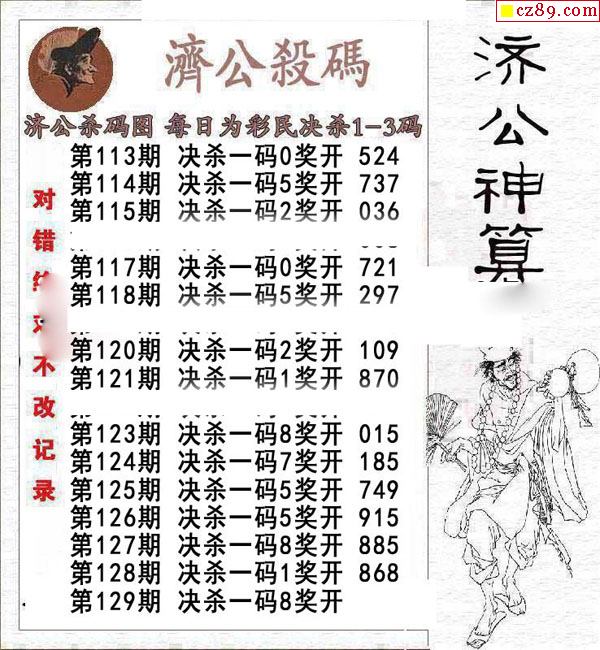 cz89.com
濟公殺碼
济公杀码图 每日为彩民决杀1-3码
第113期 决杀一码0奖开 524
第114期 决杀一码5奖开 737
第115期 决杀一码2奖开 036
第117期 决杀一码0奖开 721
第118期 决杀一码5奖开 297
第120期 决杀一码2奖开 109
第121期 决杀一码1奖开 870
第123期 决杀一码8奖开 015
第124期 决杀一码7奖开 185
第125期 决杀一码5奖开 749
第126期 决杀一码5奖开 915
第127期 决杀一码8奖开 885
第128期 决杀一码1奖开 868
第129期 决杀一码8奖开
对错
不改记录
济公神算